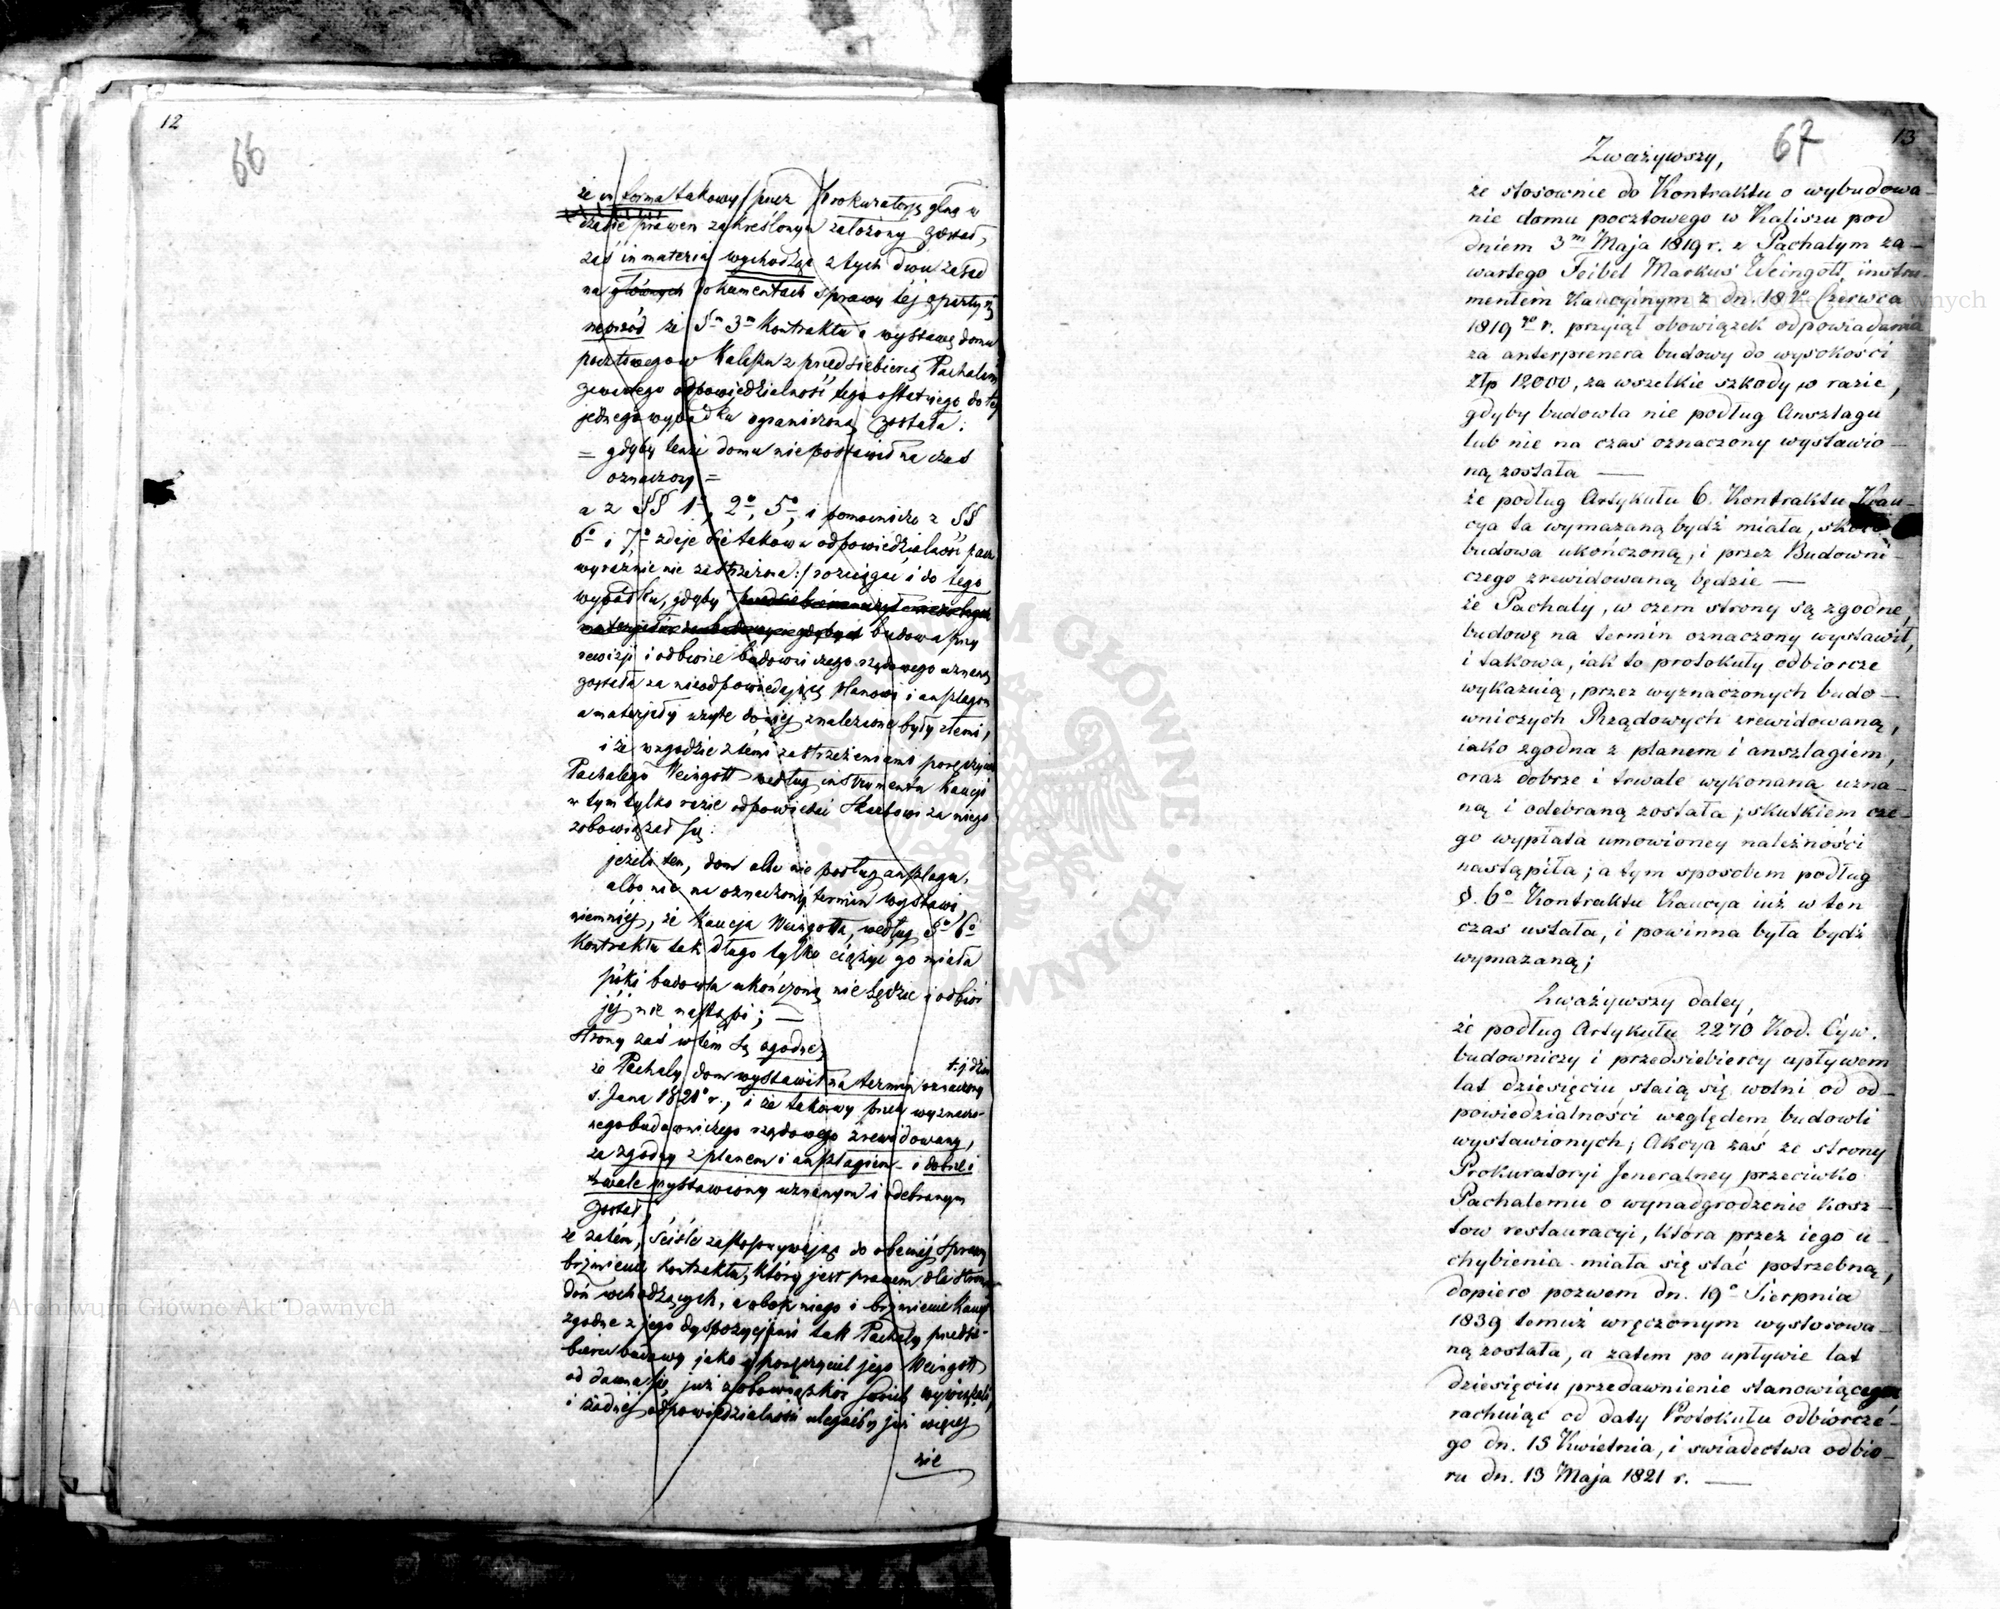 12
66
że in forma takowy przez Prokuratorję glną w
czasie prawem zakreślonym założony został,
zaś in materia wychodząc z tych dwu zasad
na głównych dokumentach sprawy tej opartych
naprzód że §m 3m Kontraktu o wystawę domu
pocztowego w Kaliszu z przedsiębiercą Pachalym
zawartego odpowiedzialność tego ostatniego do tego
jednego wypadku ograniczoną została:
= gdyby tenże domu nie postawił na czas
oznaczony =
a z §§ 1o, 2o, 5o, i pomocniczo z §§
6o i 7o zdaje się takowa odpowiedzialność
wyraźnie nie zastrzeżona:/ rozciągać i do tego
wypadku, gdyby
budowa przy
rewizji i odbiorze budowniczego rządowego uznaną
została za nieodpowiadającą planowi i anszlagom
a materjały użyte do niej znalezione były złemi,
i że w zgodzie z temi zastrzeżeniami poręczyciel
Pachalego Weingott według instrumentu Kaucji
w tym tylko razie odpowiadać Skarbowi za niego
zobowiązał się:
jeżeli ten, dom albo nie podług anszlagu,
albo nie na oznaczony termin wystawi,
niemniej, że Kaucja Weingotta, według §o 6o
Kontraktu tak długo tylko ciążyć go miała
póki budowla ukończoną nie będzie i odbiór
jej nie nastąpi; —
Strony zaś w tém są zgodne,
że Pachaly dom wystawił na termin oznaczony t.j. dzień
s. Jana 1821o r., i że takowy przez wyznaczo-
nego budowniczego rządowego zrewidowany,
za zgodny z planem i anszlagiem - i dobrze i
trwale wystawiony uznanym i odebranym
został,
że zatém, ściśle zastosowywając do obecnéj sprawy
brzmienie Kontraktu, który jest prawem dla stron
doń wchodzących, a obok niego i brzmienie Kaucji
zgodne z jego dyspozycjami tak Pachaly przedsię-
bierca budowy jako i poręczyciel jego Weingott
od dawna się już z obowiązków swoich wywiązali,
i żadnéj odpowiedzialności ulegaliby już więcej
nie
67
13
Zważywszy,
że stosownie do Kontraktu o wybudowa-
nie domu pocztowego w Kaliszu pod
dniem 3m Maja 1819 r. z Pachalym za-
wartego Feibel Markus Weingott instru-
mentem Kaucyinym z dn. 18go Czerwca
1819go r. przyiął obowiązek odpowiadania
za anterprenera budowy do wysokości
złp 12000, za wszelkie szkody w razie,
gdyby budowla nie podług Anszlagu
lub nie na czas oznaczony wystawio-
ną została —
że podług Artykułu 6. Kontraktu Kau-
cya ta wymazaną bydź miała, skoro
budowa ukończoną, i przez Budowni-
czego zrewidowaną będzie —
że Pachaly, w czem strony są zgodne,
budowę na termin oznaczony wystawił,
i takowa, iak to protokuły odbiorcze
wykazuią, przez wyznaczonych budo-
wniczych Rządowych zrewidowaną,
iako zgodna z planem i anszlagiem,
oraz dobrze i trwale wykonana uzna-
ną i odebraną została; skutkiem cze-
go wypłata umowioney należności
nastąpiła; a tym sposobem podług
§. 6o Kontraktu Kaucya iuż w ten
czas ustała, i powinna była bydź
wymazaną;
Zważywszy daley,
że podług Artykułu 2270 Kod. Cyw.
budowniczy i przedsiebiercy upływem
lat dziesięciu staią się wolni od od-
powiedzialności względem budowli
wystawionych; Akcya zaś ze strony
Prokuratoryi Jeneralney przeciwko
Pachalemu o wynadgrodzenie kosz-
tow restauracyi, która przez iego u-
chybienia miała się stać potrzebną,
dopiero pozwem dn. 19o Sierpnia
1839 temuż wręczonym wystosowa-
ną została, a zatem po upływie lat
dziesięciu przedawnienie stanowiącego
rachuiąc od daty Protokułu odbiorcze-
go dn. 15 Kwietnia, i swiadectwa odbio-
ru dn. 13 Maja 1821 r. —
Archiwum Główne Akt Dawnych